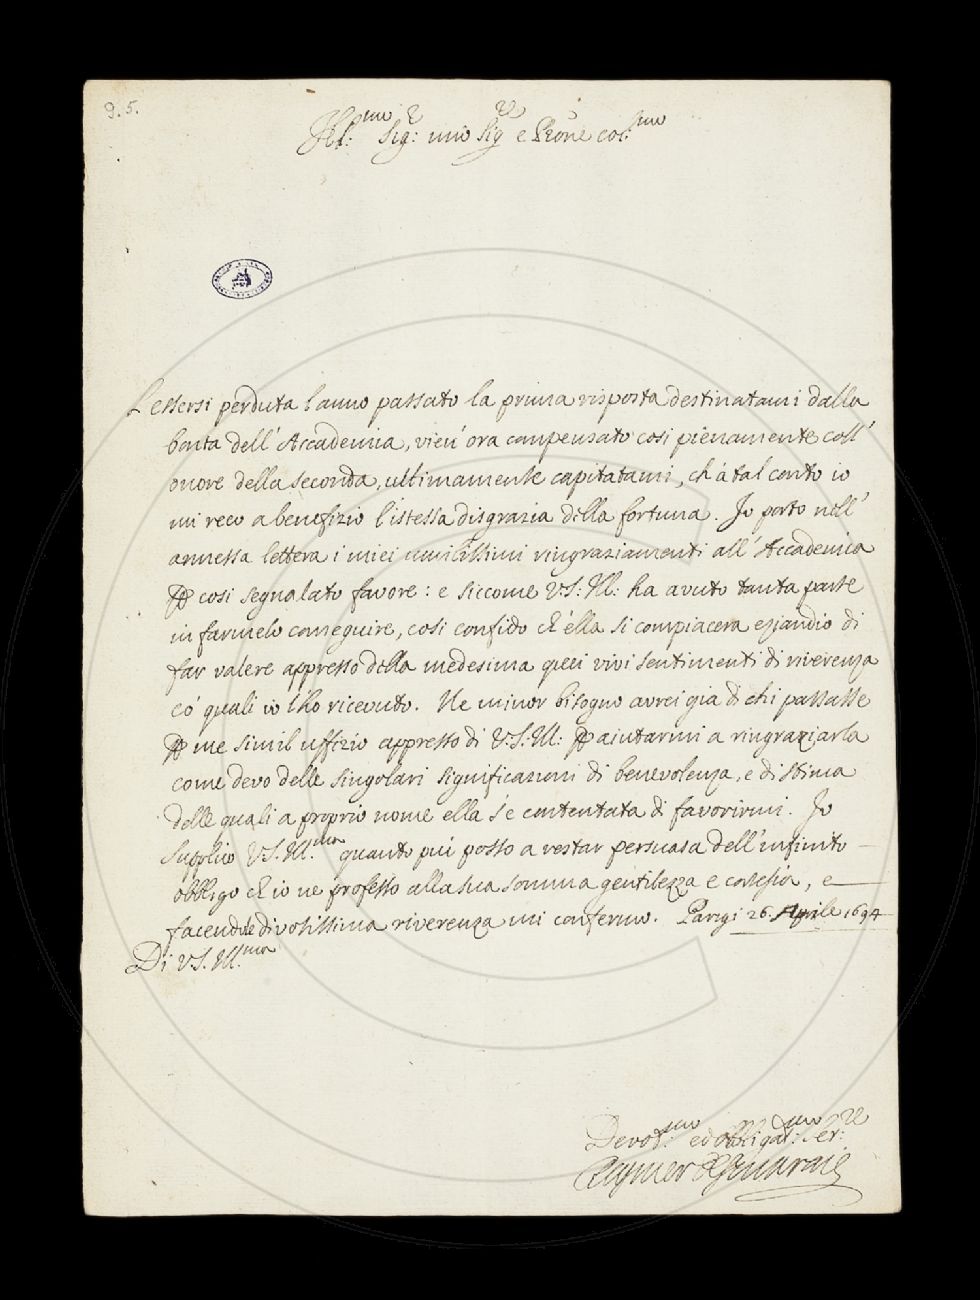 9. 5.
Ill:mo Sig:r mio Sig.re e Prõne col:mo
L'essersi perduta l'anno passato la prima risposta destinatami dalla
bontà dell'Accademia, vien'ora compensato così pienamente coll'
onore della seconda, ultimamente capitatami, ch'à tal conto io
mi reco a benefizio l'istessa disgrazia della fortuna. Io porto nell'
annessa lettera i miei umilissimi ringraziamenti all'Accademia
per così segnalato favore: e siccome V.S: Ill: ha avuto tanta parte
in farmelo conseguire, così confido ch'ella si compiacerà eziandio di
far valere appresso della medesima quei vivi sentimenti di riverenza
co' quali io l'ho ricevuto. Ne minor bisogno avrei già di chi passasse
per me simil uffizio appresso di V.S. Ill: per aiutarmi a ringraziarla
come devo delle singolari significazioni di benevolenza, e di stima
delle quali a proprio nome ella s'è contentata di favorirmi. Io
supplico V.S. Ill.ma quanto più posso a restar persuasa dell'infinito
obbligo ch'io ne professo alla sua somma gentilezza e cortesia, e
facendole divotissima riverenza mi confermo. Parigi 26. Aprile 1694
Di V.S. Ill.ma
Devot:mo ed obbligat:mo Ser:re